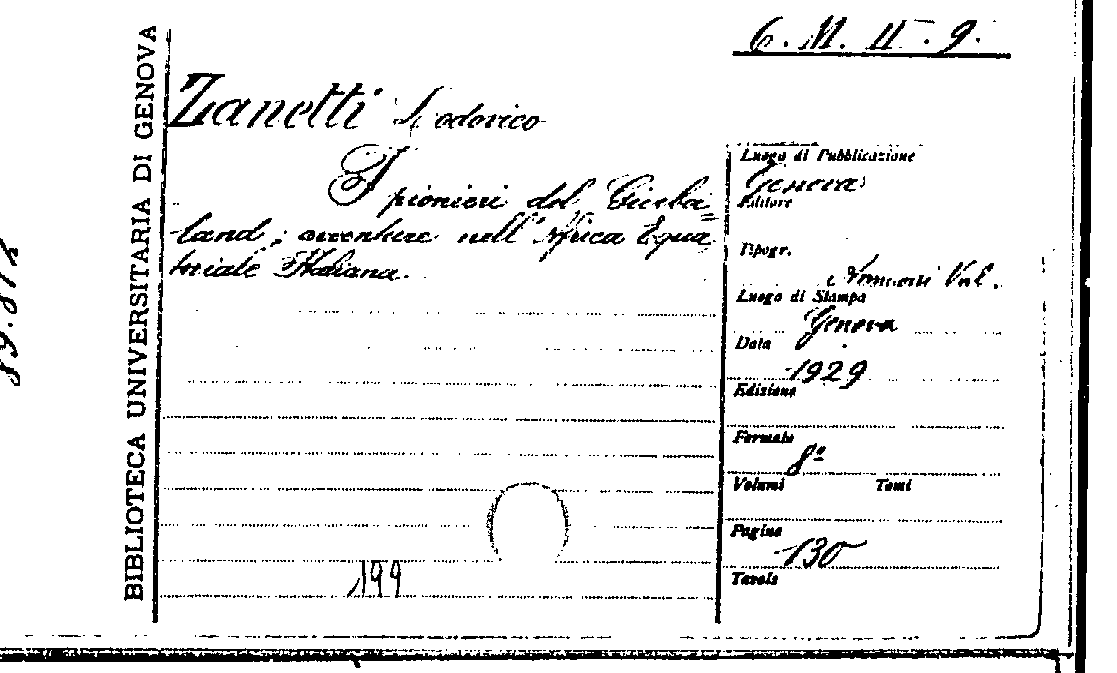 6. M. II. 9.
BIBLIOTECA UNIVERSITARIA DI GENOVA
Zanetti Lodovico
I pionieri del Giuba=
land; avventure nell'Africa Equa
toriale Italiana.
199
Luogo di Pubblicazione
Genova
Editore
Tipogr.
Val.
Luogo di Stampa
Genova
Data
1929
Edizione
Formato
8º
Volumi Tomi
Pagine
130
Tavole